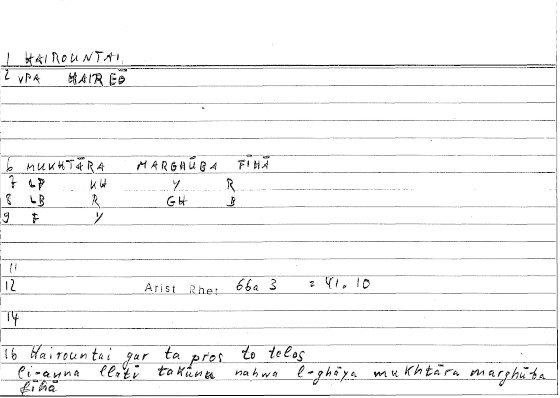 1 HAIROUNTAI
2 VPA HAIREŌ
6 MUKHTĀRA MARGHŪBA FĪHĀ
7 LP KH Y R
8 LB R GH B
9 F Y
11
12 Arist Rhet 66a 3 = 41.10
14
16 Hairountai gar ta pros to telos
li-anna llatī takūnu nahwa l-ghāya mukhtāra marghūba
fīhā